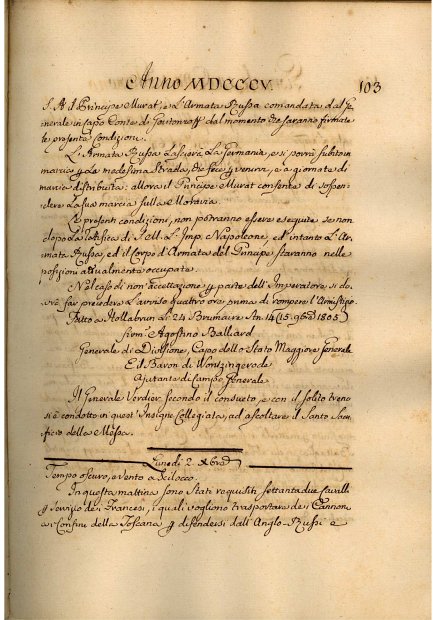 Anno MDCCCV. 103
S. A. I. Principe Murat, e L'Armata Russa comandata dal Ge-
nerale in capo Conte di dal momento che saranno firmate
le presenti Condizioni.
L'Armata Russa Lascierà La Germania, e si porrà subito in
marcia La medesima Strada, che fece venire, e a giornate di
marcia distribuite: allora il Principe Murat consente di sospen-
dere la sua marcia sulla Moravia.
Le presenti condizioni, non potranno essere eseguite se non
dopo la ratifica di S. M. L'Imp. Napoleone, ed intanto L'Ar-
mata Russa, ed il Corpo d'Armata del Principe staranno nelle
posizioni attualmente occupate.
Nel caso di non accettazione parte dell'Imperatore, si do-
vrà far precedere l'avviso quattro ore prima di rompere l'Armistizio
Fatto a Hollabrun Le 24 Brumaire An. 14 (15. 9bre 1805)
Agostino Balliard
Generale di Divisione, Capo dello Stato Maggiore Generale
E. d. Baron di
Ajutante di Campo Generale
Il Generale Verdier secondo il consueto, e con il solito treno
si è condotto in quest'Insigne Collegiata, ad ascoltare il Santo Sac-
rificio della Messa.
Lunedì 2. Xbre
Tempo oscuro, e vento a Scilocco.
In questa mattina sono stati requisiti settantadue Cavalli
servizio dei Francesi, i quali vogliono trasportare dei Cannoni
ai confini della Toscana difendersi dall'Anglo-Russi e